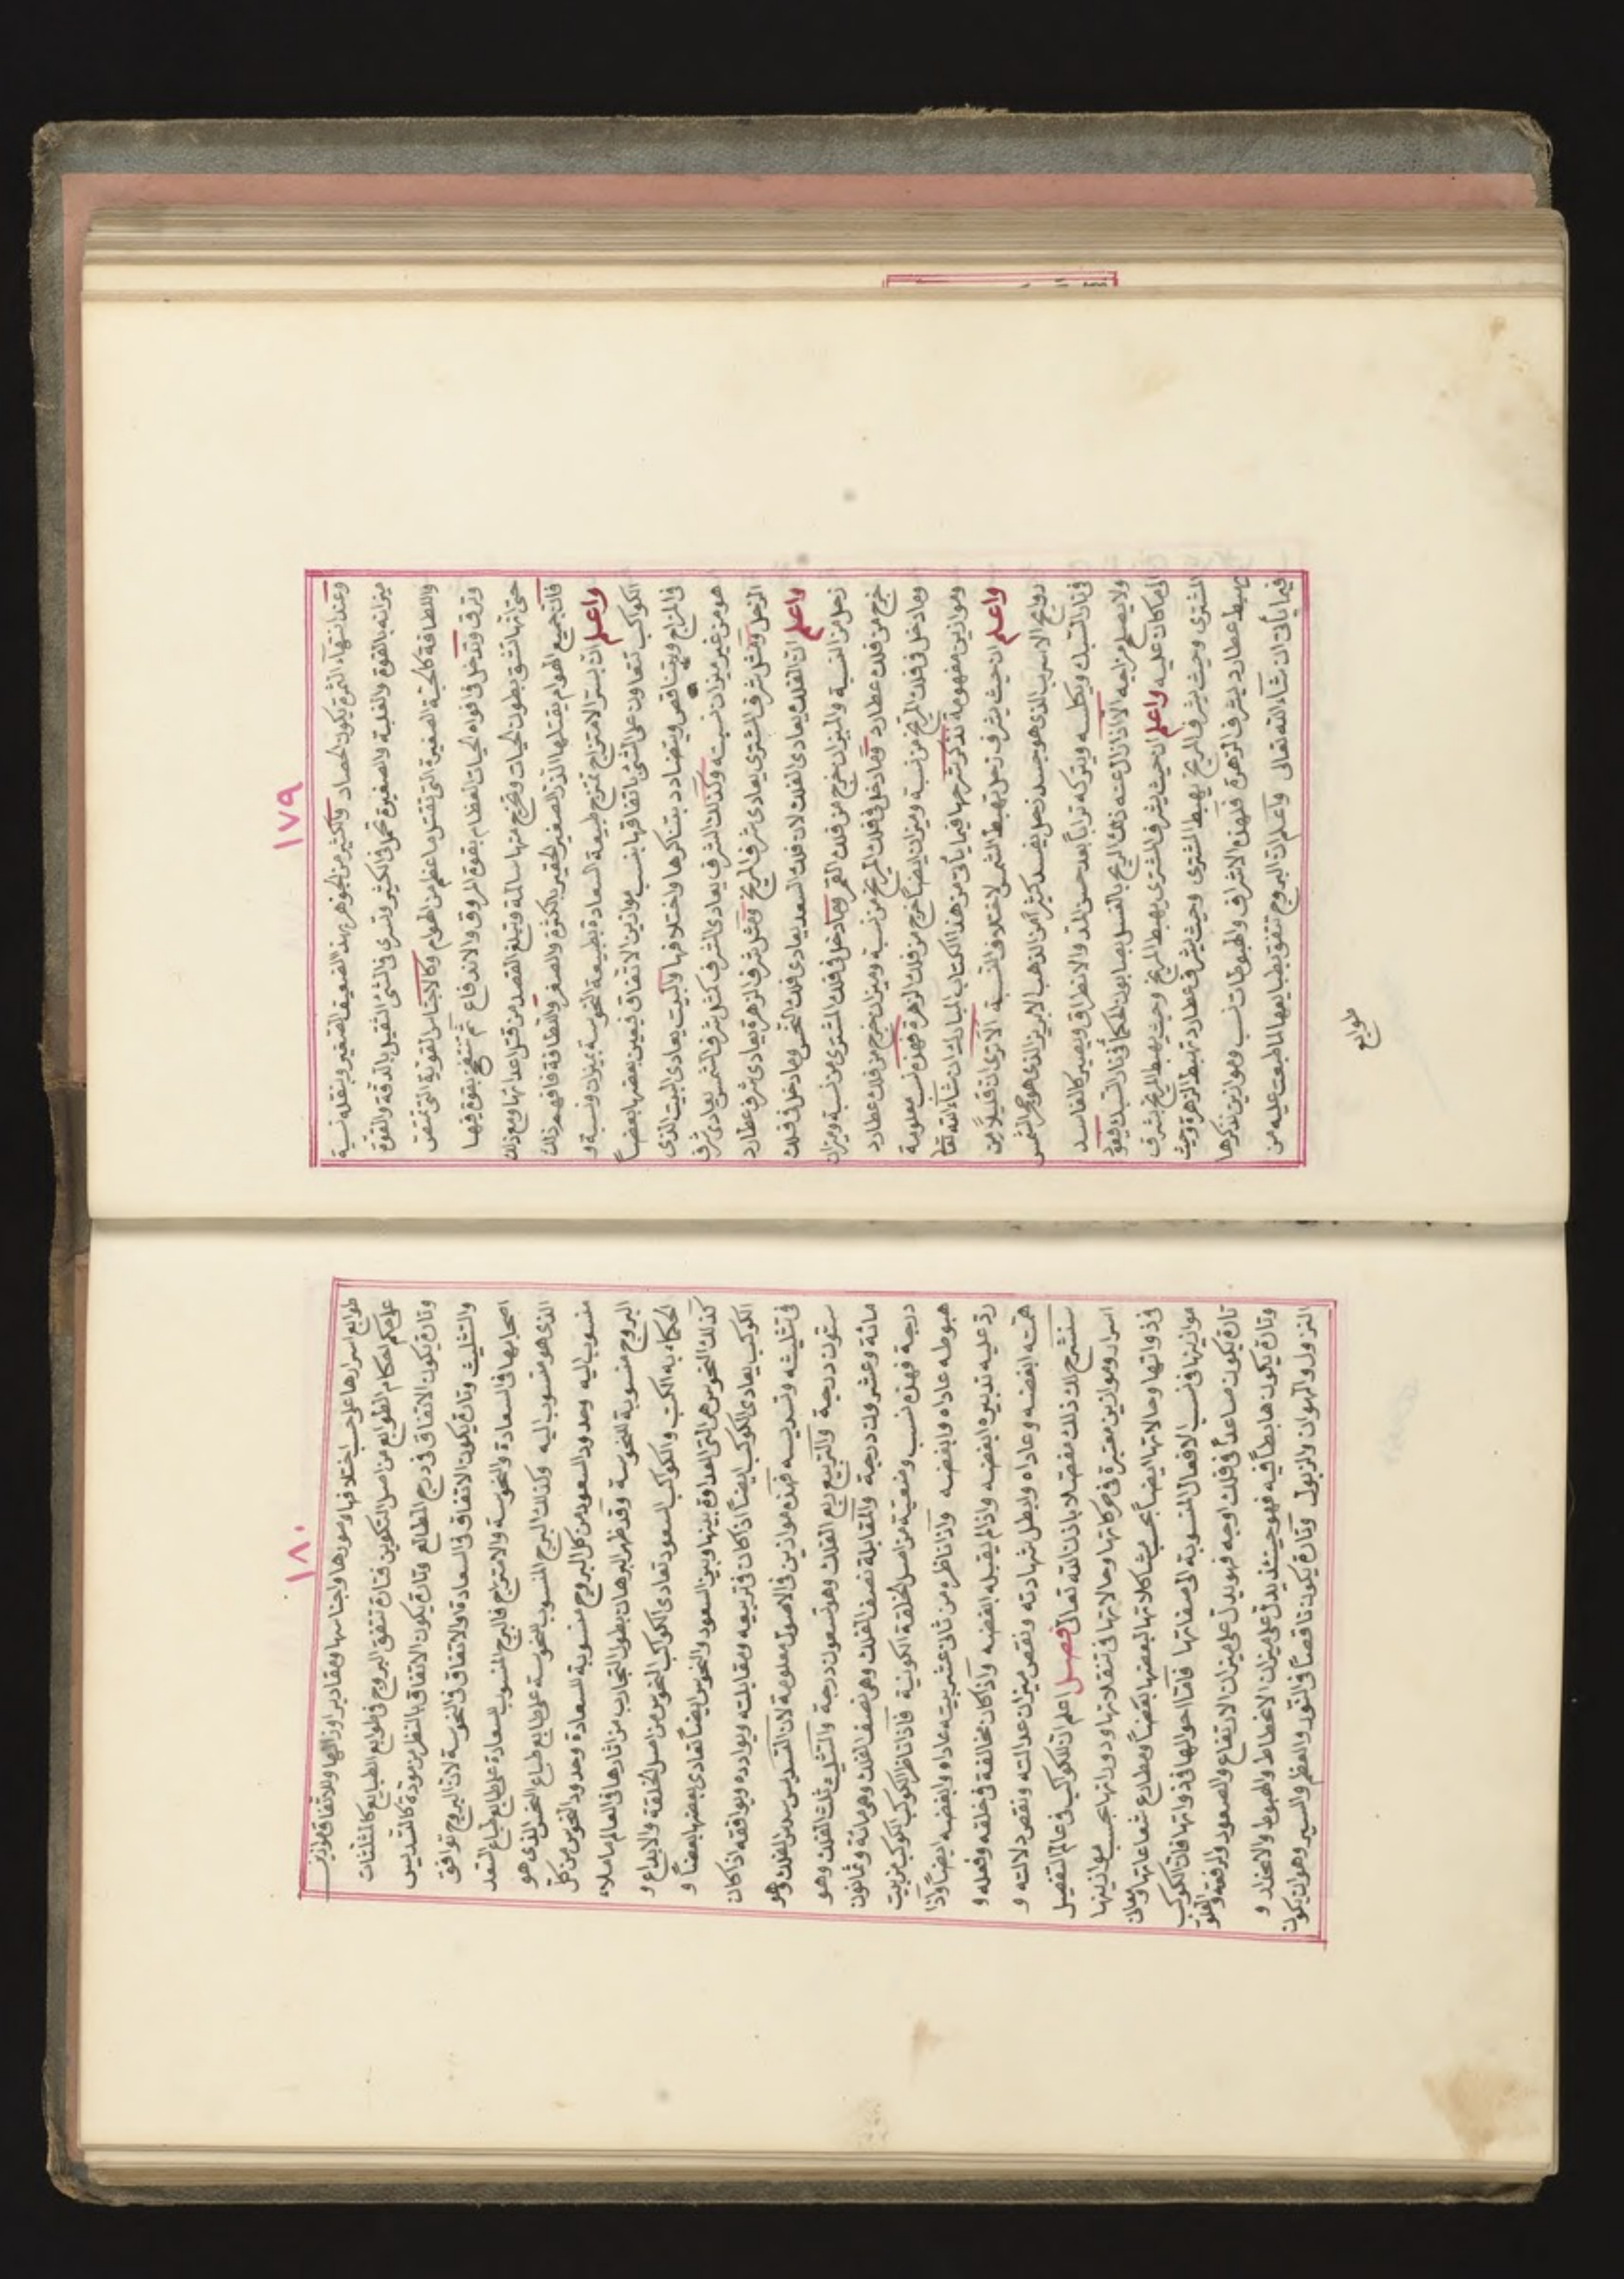 ١٧٩
وعند انتهاء الثمرة يكون الحصاد والكثير من الجوهر بهذه الضعيف الصغير وينقله نسبة
ميزانه بالقوة والغلبة والصغيرة تحمل في الكثير وتسرى في الشئ الثقيل بالدقة والقوة
واللطافة كالحية الصغيرة التى تقتل ما عظم من الهوام وكالاجناس القوية التى تمتقن
وترق وتدخل في افواه الحيات العظام بقوة المروق والاندفاع ثم تنتفخ بقوة فيها
حتى انها تشق بطون الحيات وتخرج منها سالمة وتبلغ القصد من قتل اعدائها ومع ذلك
فان جميع الهوام يقتلها الذر الصغير الحقير بالكثرة والصغر واللطافة فافهم ذلك
واعلم ان بستر الامتزاج تمتزج طبيعة السعادة بطبيعة النحوسة بميزان ونسبة و
الكواكب تتعاون على الشئ باتفاقها بنسب موازين الاتفاق فيعين بعضها بعضاً
فى المزاج ويتناقص ويتضادد بتناكرها واختلافها والبيت يعادى البيت الذى
هو من غير ميزان نسبته وكذلك الشرف يعادى الشرف كمثل شرف الشمس يعادى شرف
الزحل ومثل شرف المشترى يعادى شرف المريخ ومثل شرف الزهرة يعادى شرف عطارد
واعلم ان الفلك يعادى الفلك لان فلك السعد يعادى فلك النحس وما دخل فى فلك
زحل من النسبة والميزان خرج من فلك القمر وما دخل فى فلك المشترى من نسبة وميزان
خرج من فلك عطارد وما دخل فى فلك المريخ من نسبة وميزان خرج من فلك عطارد
وما دخل فى فلك المريخ من نسبة وميزان ايضاً خرج من فلك الزهرة فهذه نسب معلومة
وموازين مفهومة نذكر شرحها فيما يأتى من هذا الكتاب المبارك ان شاء الله تعالى
واعلم ان حيث يشرف زحل يهبط الشمس لاختلاف النسبة الا ترى ان قليلاً من
روايح الاسرب الذى هو جسد زحل يفسد كثيراً من الذهب الابريز الذى هو حجر الشمس
فى نار السبك ويكلسه ويتركه تراباً بعد حسن المد والانطراق ويصير كالفاسد
ولا يصلح مزاجه الا اذا زال عنه ذلك الريح بالغسل بصابون الحكماء فى نار السبك فيعود
الى ما كان عليه واعلم ان حيث يشرف المشترى يهبط المريخ وحيث يهبط المريخ يشرف
المشترى وحيث يشرف المريخ يهبط المشترى وحيث يشرف عطارد تهبط الزهرة وحيث
يهبط عطارد يشرف الزهرة فهذه الاشراف والهبوطات نسب وموازين نذكرها
فيما يأتى ان شاء الله تعالى واعلم ان البروج تتفق بطبايعها المطبعت عليه من
طوابع
١٨٠
طوابع اسرارها على حسب اختلافها وصورها واجناسها ومقادير اوزانها وللاتفاق موازين
على حكم احكام الطوابع من اصل التكوين فتارة تتفق البروج فى طوابع الطبايع كالمثلثات
وتارة يكون الاتفاق فى درج المطالع وتارة يكون الاتفاق بالنظر من مودة كالتسديس
والتثليث وتارة يكون الاتفاق فى السعادة والاتفاق فى النحوسة لان البروج توافق
اصحابها فى السعادة والنحوسة والامتزاج فالبرج المنسوب للسعادة على طبايع طباع السعد
الذى هو منسوب اليه وكذلك البرج المنسوب للنحوسة على طبايع طباع النحس الذى هو
منسوب اليه وحدود السعود من كل البروج منسوبة للسعادة وحدود النحوس من كل
البروج منسوبة للنحوسة وقد ظهر البرهان بطول التجارب من اثارها فى العالم ما ملاء
الحكماء به الكتب والكواكب السعود تعادى الكواكب النحوس من اصل الخلقة والابداع و
كذلك النحوس هى التى العداوة بينها وبين السعود والنحوس ايضاً تعادى بعضها بعضاً و
الكوكب يعادى الكوكب ايضاً اذا كان فى تربيعه ومقابلته ويوادده ويوافقه اذا كان
فى تثليثه وتسديسه فهذه موازين فى الاصول معلومة لان التسديس سدس الفلك وهو
ستون درجة والتربيع ربع الفلك وهو تسعون درجة والتثليث ثلث الفلك وهو
مائة وعشرون درجة والمقابلة نصف الفلك وهى نصف الفلك وهى مائة وثمانون
درجة فهذه نسب وضعية من اصل الخلقة الكونية فاذا ناظر الكوكب الكوكب من بيت
هبوطه عاداه وابغضه واذا ناظره من ثانى عشر بيته عاداه وابغضه ايضاً واذا
رد عليه تدبيره ابغضه واذا لم يقبله ابغضه واذا كان مخالفة فى خلقه وفعله و
همته ابغضه وعاداه وابطل شهادته ونقص ميزان عدالته ونقص دلالته و
سنشرح لك ذلك مفصلا باذن الله تعالى فصل اعلم ان للكواكب فى عالم التفصيل
اسرار وموازين معتبرة فى حركاتها وحالاتها فى تنقلاتها ودورانها بحسب موازينها
فى ذواتها وحالاتها ايضاً بحسب مشاكلاتها لبعضها بعضاً ومطارح شعاعاتها ومعان
موازينها فى نسب الافعال المنسوبة الى صفاتها فاما احوالها فى ذواتها فان الكوكب
تارة يكون صاعداً فى فلك اوجه فهو يدل على ميزان الارتفاع والصعود والرفعة والعلو
وتارة يكون هابطاً فيه فهو حينئذ يدل على ميزان الانحطاط والهبوط والانحدار و
النزول والهوان والزبول وتارة يكون ناقصاً فى النور والعظم والسير وهو ان يكون